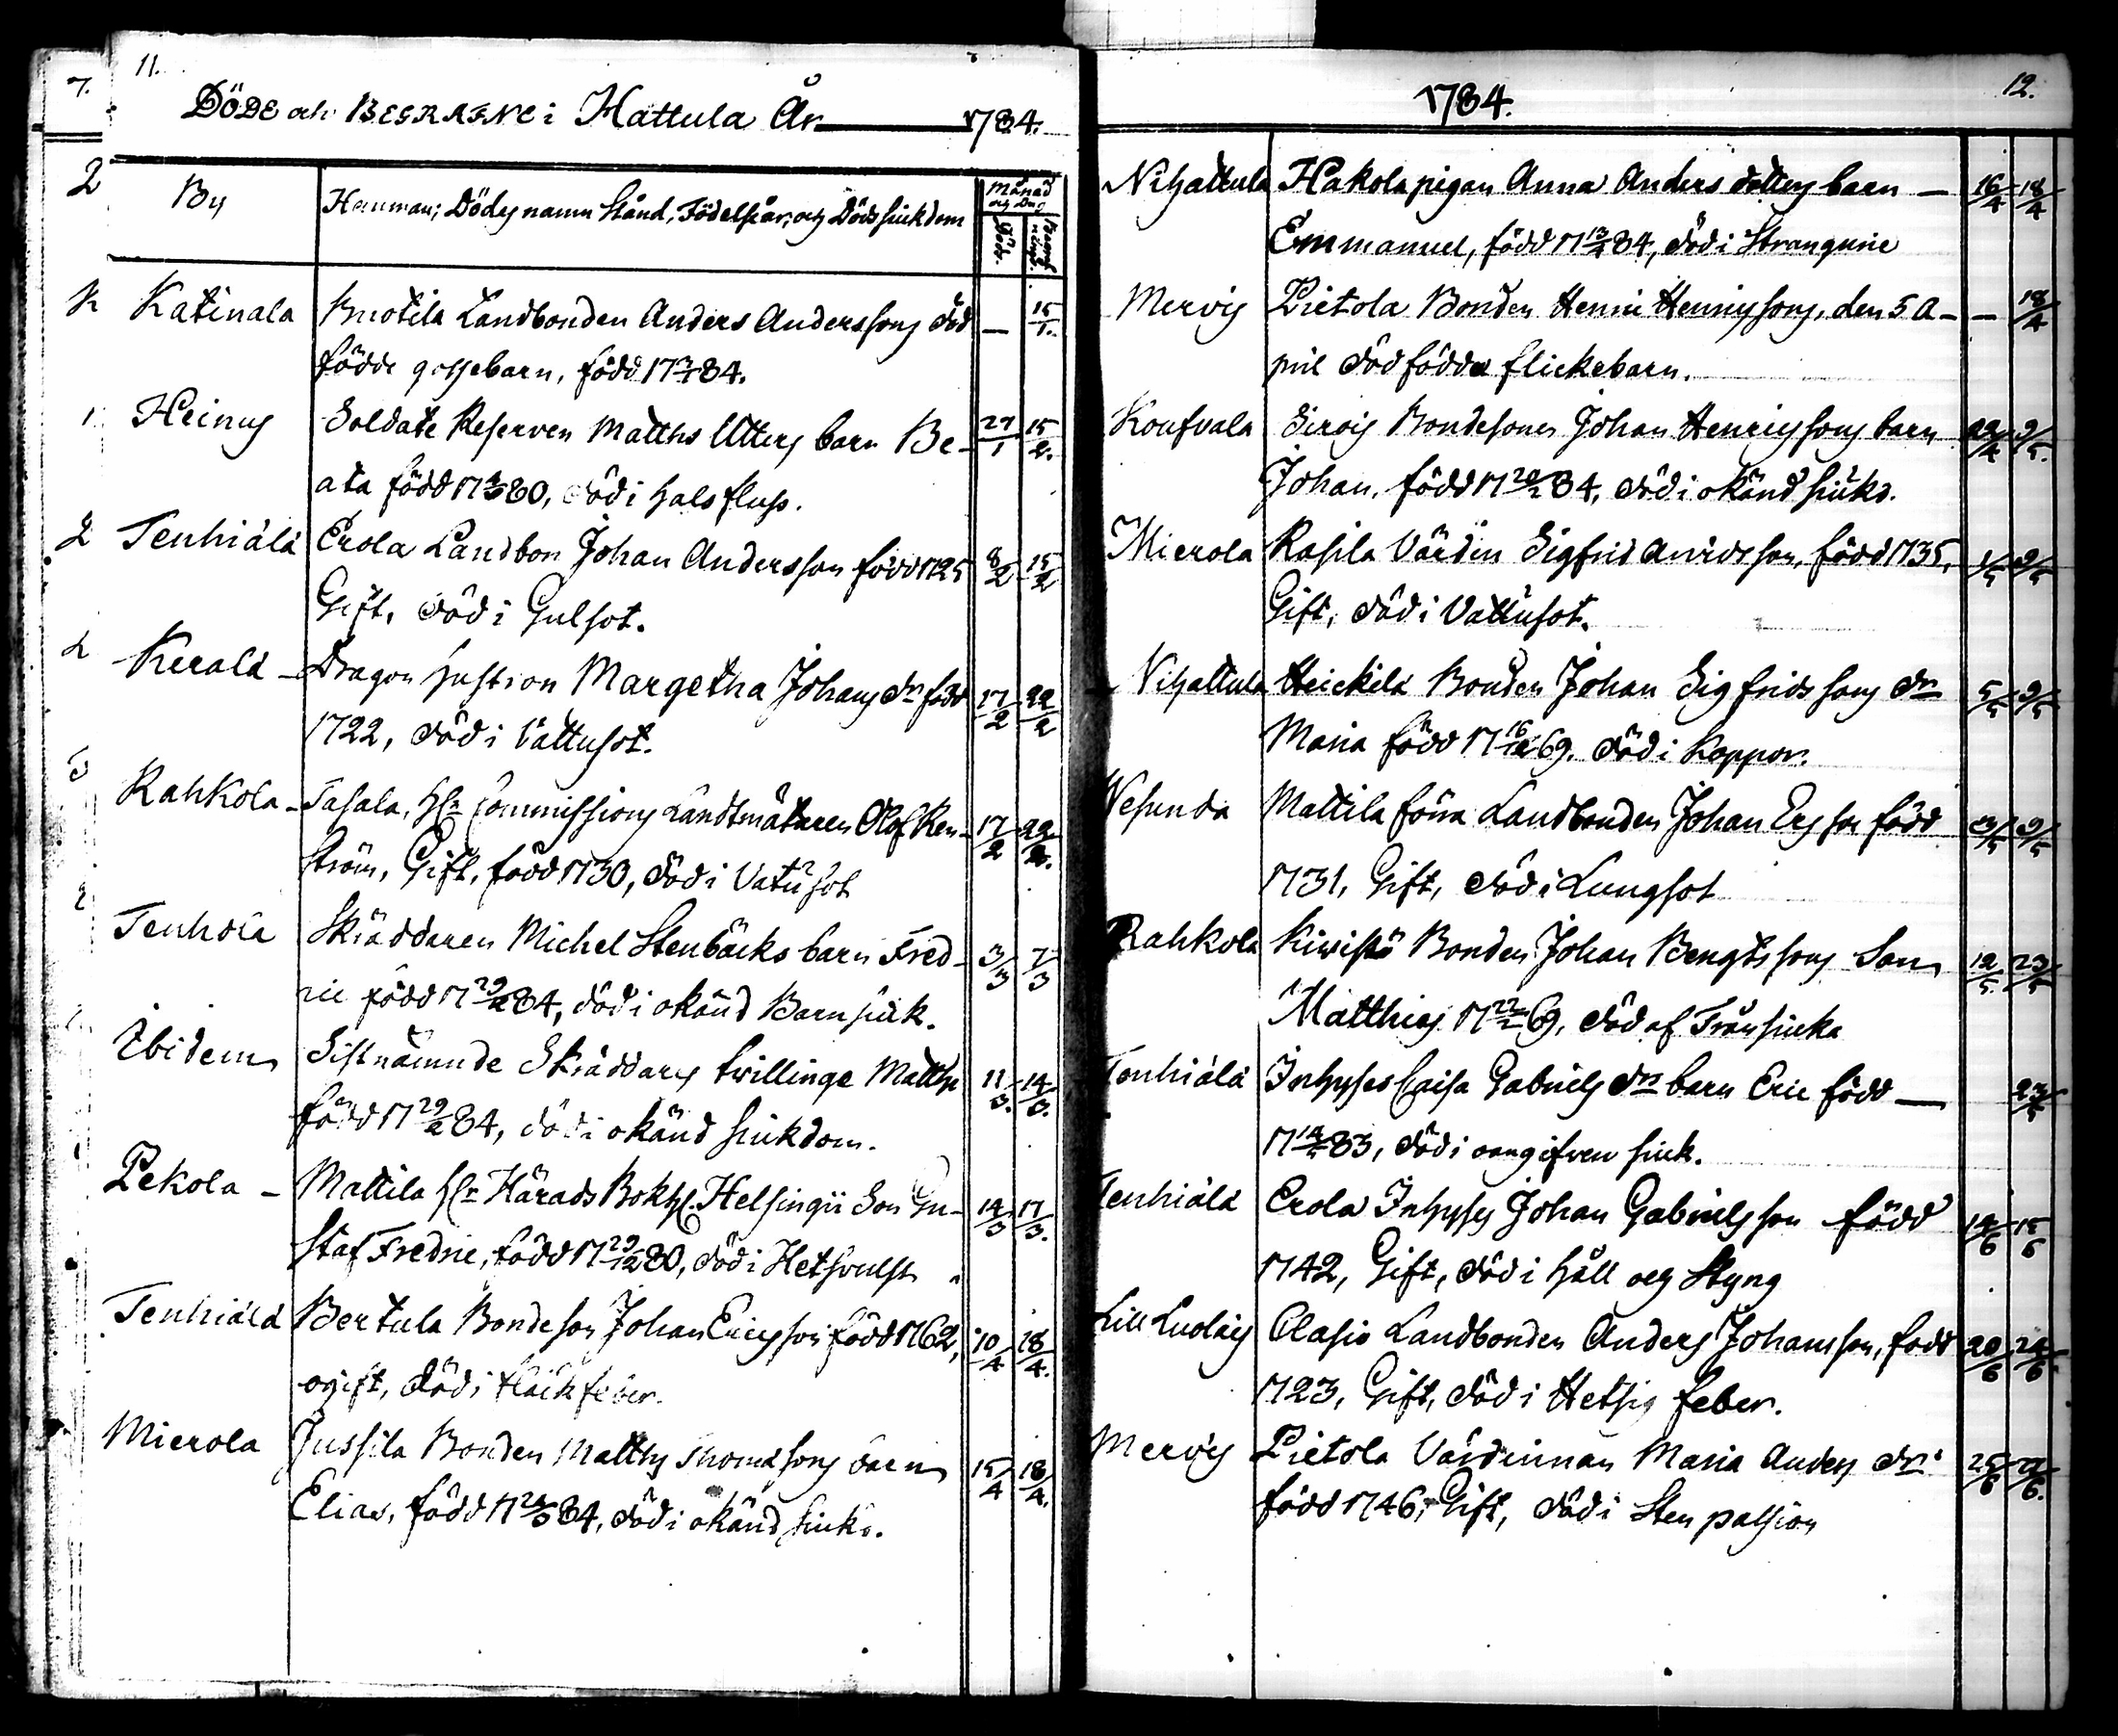 7. 11.
DÖDE och BEGRAFNE i Hattula År 1784.
By Hemman; Dödes namn Stånd, Födelseår, och Dödssiukdom Månad och Dag
Katinala Knotila Landbonden Anders Anderssons död — 15/1.
födde gossebarn, född 17 84.
Heinus Soldate Reserven Matths Utters barn Be- 27/1 15/2.
ata född 17 80, död i halsfluss.
Tenhiälä Erola Landbon Johan Andersson född 1725 8/2 15/2
Gift, död i Gulsot.
Kerälä Dragon hustron Margetha Johans dr född 17/2 22/2
1722, död i Vattusot.
Rahkola Tasala, Hr Commissions Landtmätaren Olof Ren- 17/2 22/2.
ström, Gift, född 1730, död i Vatusot
Tenhola Skräddaren Michel Stenbäcks barn Fred- 3/3 7/3
ric född 17 29/2 84, död i okänd Barnsiuk.
Ibidem Sistnämnde Skräddars tvillinge Matths 11/3. 14/3.
född 17 29/2 84, död i okänd siukdom.
Pekola Mattila Hr Härads Bokh. Helsingii Son Gu- 14/3 17/3.
staf Fredric, född 17 29/12 80, död i Hetsvulst
Tenhiälä Bertula Bondeson Johan Ericsson född 1762, 10/4 18/4.
ogift, död i Fläckfeber.
Mierola Jussila Bonden Matths Thomassons barn 15/4 18/4.
Elias, född 17 24/3 84, död i okänd siukd.
12.
1784.
Nihattula Hakola pigan Anna Anders dotters barn — 16/4 18/4
Emmanuel, född 17 13/4 84, död i Strangurie
Mervis Pietola Bonden Henric Henricssons, den 5 A- — 18/4
pril dödfödda flickebarn.
Koufvala Sirois Bondesonen Johan Henricssons barn 22/4 9/5.
Johan, född 17 84, död i okänd siukd.
Mierola Rasila Värdin Sigfrid Anridsson, född 1735, 1/5 9/5
Gift, död i Vattusot.
Nihattula Heickilä Bonden Johan Sigfridssons dr 5/5 9/5
Maria född 17 16/12 69. död i Koppor.
Wesunda Mattila förra Landbonden Johan Ersson född 3/5 9/5
1731, Gift, död i Lungsot
Rahkola Kivistö Bonden Johan Bengtssons Son 12/5 23/5
Matthias 17 22/2 69, död af Trånsiuka
Tenhiälä Inhyses Caisa Gabriels drs barn Eric född — 23/5
17 83, död i oangifven siuk.
Tenhiälä Erola Inhyses Johan Gabrielsson född 14/6 15/6
1742, Gift, död i håll och Styng
Lill Luolais Olasio Landbonden Anders Johansson, född 20/6 24/6
1723, Gift, död i Hetsig feber.
Mervis Pietola Värdinnan Maria Anders dr
född 1746, Gift, död i Sten passion